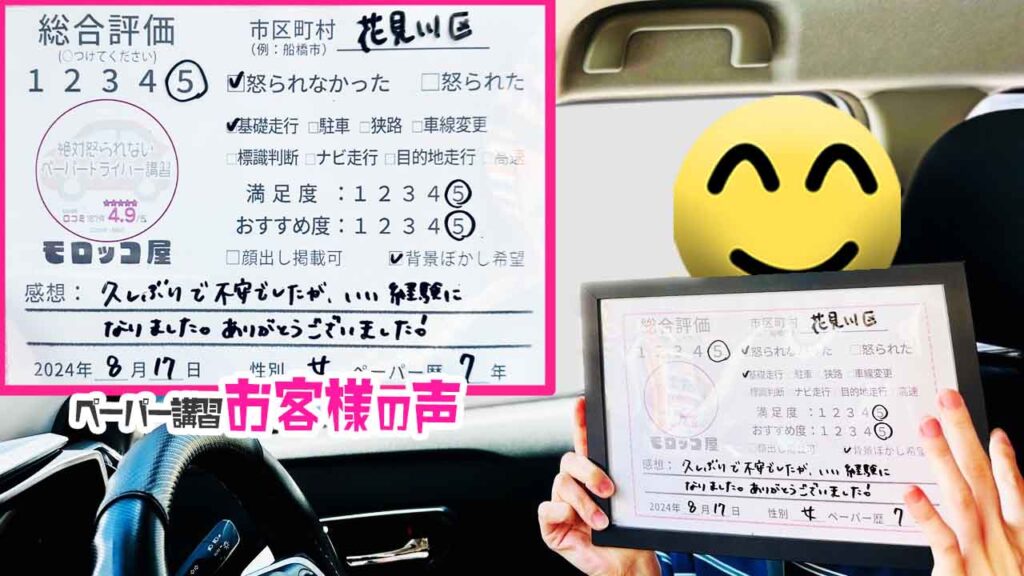 総合評価
(○つけてください)
1 2 3 4 5
市区町村 花見川区
(例：船橋市)
✔怒られなかった □怒られた
✔基礎走行 □駐車 □狭路 □車線変更
□標識判断 □ナビ走行 □目的地走行 □高速
満足度：1 2 3 4 5
おすすめ度：1 2 3 4 5
□顔出し掲載可 ✔背景ぼかし希望
絶対怒られない
ペーパードライバー講習
★★★★★
4.9/5
モロッコ屋
感想：久しぶりで不安でしたが、いい経験に
なりました。ありがとうございました!
2024年8月17日 性別 女 ペーパー歴 7年
ペーパー講習お客様の声
総合評価
市区町村 花見川区
1 2 3 4 5
✔怒られなかった □怒られた
✔基礎走行 □駐車 □狭路 □車線変更
標識判断 □ナビ走行 □目的地走行 □高速
満足度：1 2 3 4 5
おすすめ度：1 2 3 4 5
モロッコ屋
□顔出し掲載可 ✔背景ぼかし希望
感想：久しぶりで不安でしたが、いい経験に
なりました。ありがとうございました!
2024年8月17日 性別 女 ペーパー歴 7